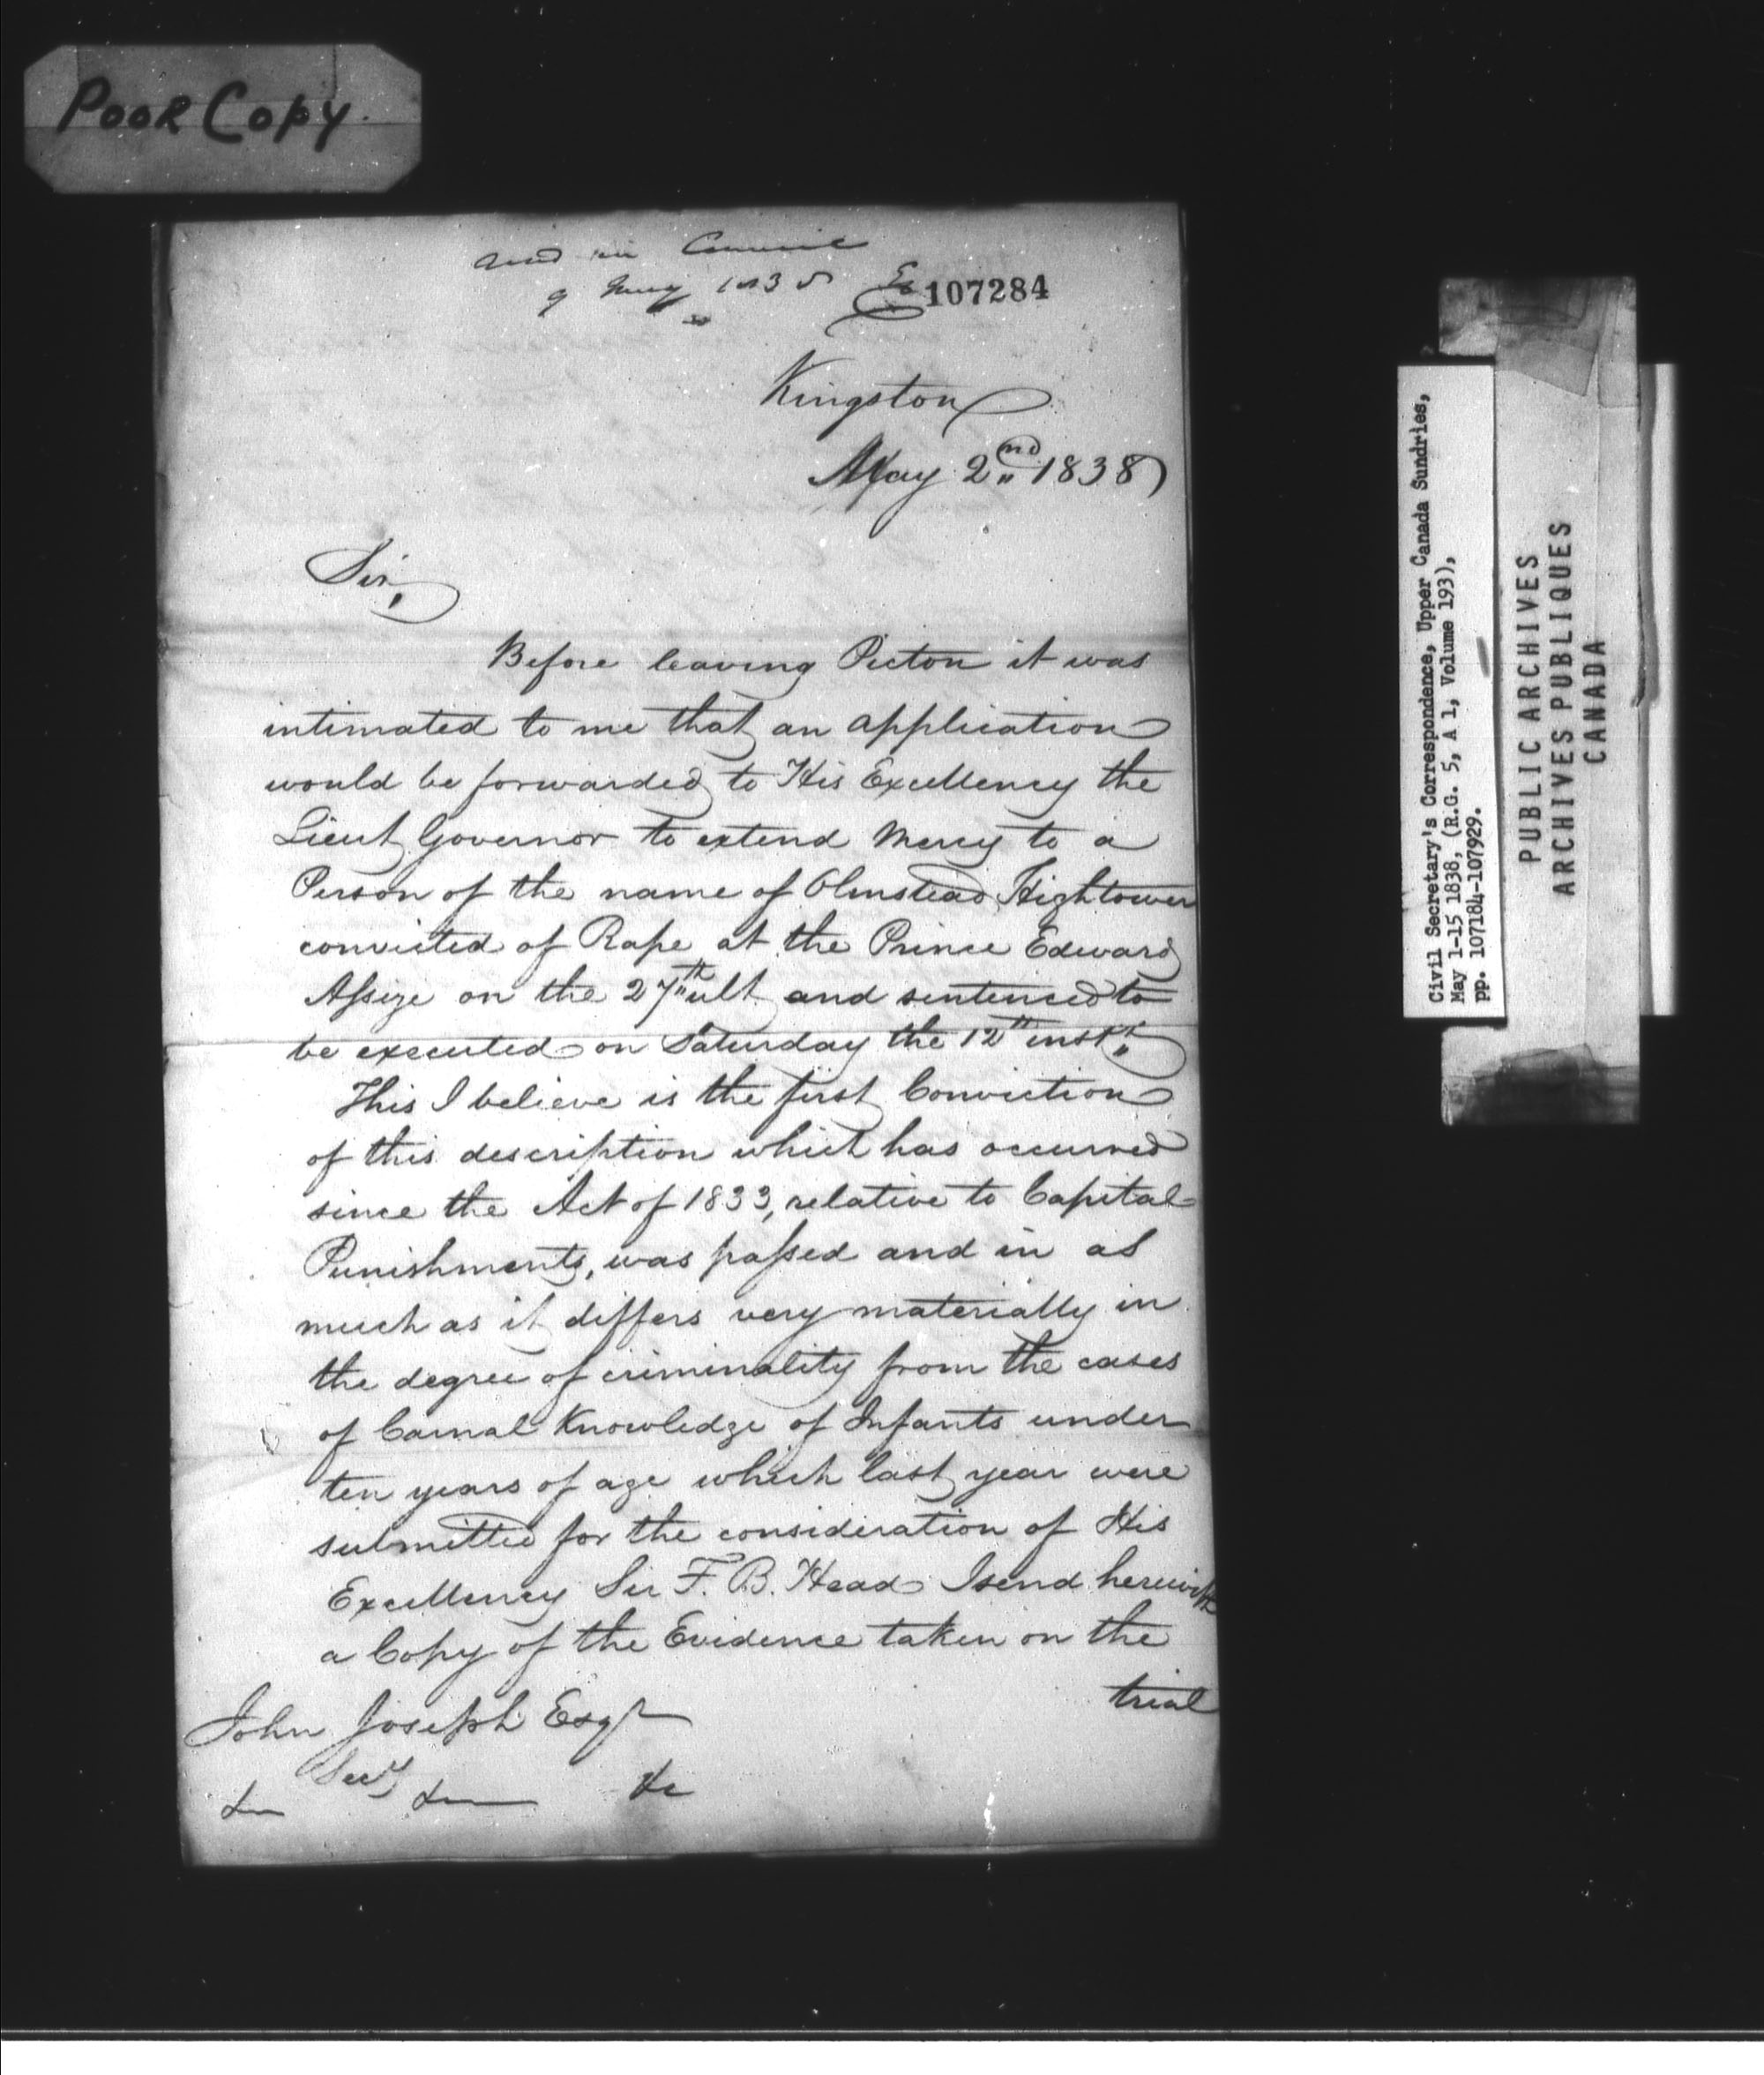 POOR COPY.
in Council
9 May 1838
107284
Kingston
May 2nd 1838
Sir,
Before leaving Picton it was
intimated to me that an application
would be forwarded to His Excellency the
Lieut Governor to extend Mercy to a
Person of the name of Olmstead Hightower
convicted of Rape at the Prince Edward
Assize on the 27th ult and sentenced to
be executed on Saturday the 12th instt
This I believe is the first Conviction
of this description which has occurred
since the Act of 1833, relative to Capital
Punishments, was passed and in as
much as it differs very materially in
the degree of criminality from the cases
of Carnal Knowledge of Infants under
ten years of age which last year were
submitted for the consideration of His
Excellency Sir F. B. Head I send herewith
a Copy of the Evidence taken on the
trial
John Joseph Esqr
Secy
&c &c &c
Civil Secretary's Correspondence, Upper Canada Sundries,
May 1-15 1838, (R.G. 5, A 1, Volume 193),
pp. 107184-107929.
PUBLIC ARCHIVES
ARCHIVES PUBLIQUES
CANADA